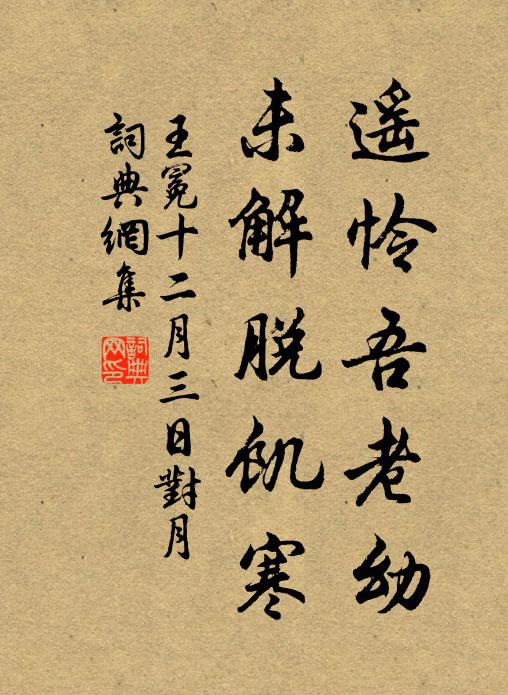 遥怜吾老幼
未解脱饥寒
王冕十二月三日對月
詞典網集
詞典网印